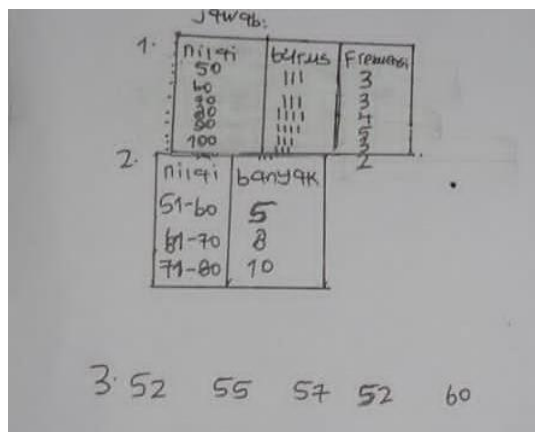 Jawab:
1. nilai turus Frekuensi
50 III 3
60 3
70 III 4
80 IIII 5
90 IIII 3
100 III 2
2. nilai banyak
51-60 5
61-70 8
71-80 10
3. 52 55 57 52 60